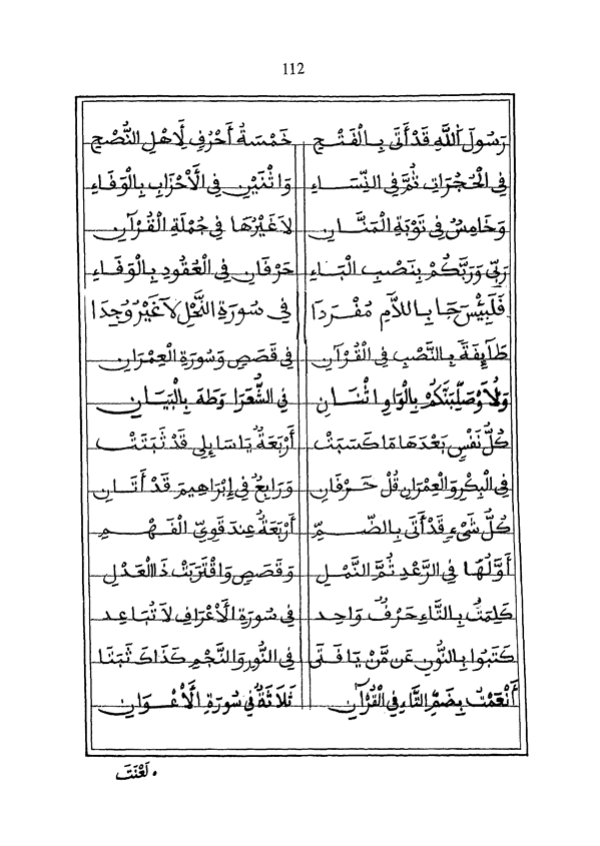 112
رَسُولَ اللَّهِ قَدْ أَتَى بِالْفَتْحِ خَمْسَةُ أَحْرُفٍ لِأَهْلِ النُّصْحِ
فِي الْحُجُرَاتِ ثُمَّ فِي النِّسَاءِ وَاثْنَيْنِ فِي الْأَحْزَابِ بِالْوَفَاءِ
وَخَامِسٌ فِي تَوْبَةِ الْمَنَّانِ لَا غَيْرُهَا فِي جُمْلَةِ الْقُرْآنِ
رَبِّي وَرَبَّكُمْ بِنَصْبِ الْبَاءِ حَرْفَانِ فِي الْعُقُودِ بِالْوَفَاءِ
فَلَبِئْسَ جَا بِاللَّامِ مُفْرَدَا فِي سُورَةِ النَّحْلِ لَا غَيْرُ وُجِدَا
طَآئِفَةً بِالنَّصْبِ فِي الْقُرْآنِ فِي قَصَصٍ وَسُورَةِ الْعِمْرَانِ
وَلَأُوصَلِّبَنَّكُمْ بِالْوَاوِ اثْنَانِ فِي الشُّعَرَا وَطَهَ بِالْبَيَانِ
كُلُّ نَفْسٍ بَعْدَهَا مَا كَسَبَتْ أَرْبَعَةٌ يَا سَائِلِي قَدْ ثَبَتَتْ
فِي الْبِكْرِ وَالْعِمْرَانِ قُلْ حَرْفَانِ وَرَابِعٌ فِي إِبْرَاهِيمَ قَدْ أَتَانِ
كُلُّ شَيْءٍ قَدْ أَتَى بِالضَّمِّ أَرْبَعَةٌ عِنْدَ قَوِيِّ الْفَهْمِ
أَوَّلُهَا فِي الرَّعْدِ ثُمَّ النَّمْلِ وَقَصَصٍ وَاقْتَرَبَتْ ذَا الْعَدْلِ
كَلِمَتُ بِالتَّاءِ حَرْفٌ وَاحِد فِي سُورَةِ الْأَعْرَافِ لَا تُبَاعِد
كَتَبُوا بِالنُّونِ عَن مَّنْ يَا فَتَى فِي النُّورِ وَالنَّجْمِ كَذَاكَ ثَبَتَا
أَنْعَمْتُ بِضَمِّ التَّاءِ فِي الْقُرْآنِ ثَلَاثَةٌ فِي سُورَةِ الْأَعْوَانِ
لَعْنَتَ